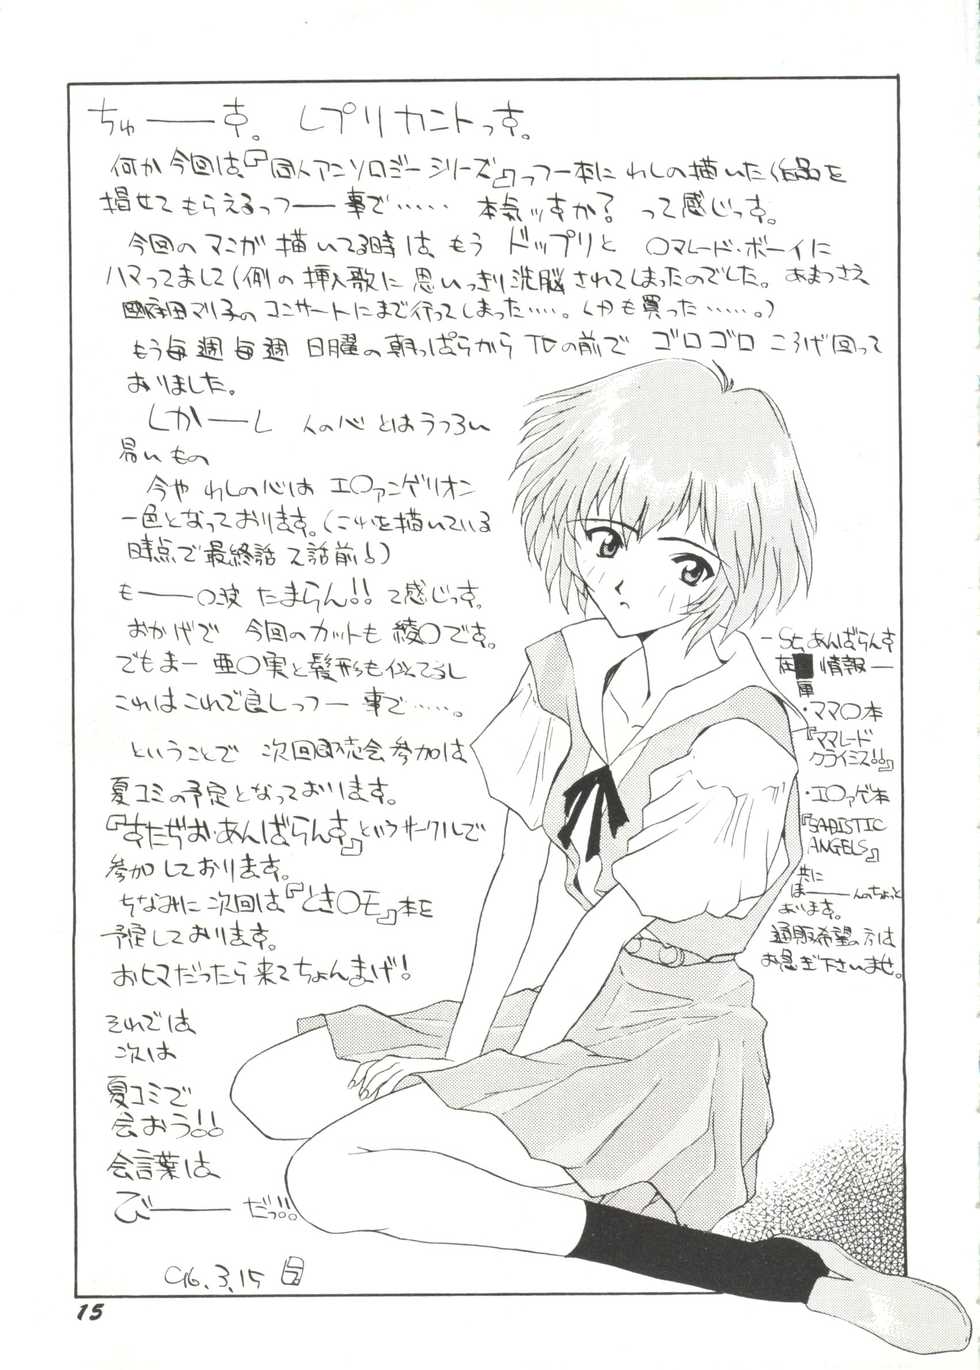 ちゅ――す。 レプリカントっす。
何か今回は、『同人アンソロジーシリーズ』っつー本に わしの描いた作品を
掲せてもらえるっつ――事で…… 本気ッすか? って感じっす。
今回のマンガ描いてる時は、もう ドップリと ○マレード・ボーイに
ハマってまして(例の挿入歌に 思いっきり洗脳されてしまったのでした。あまつさえ
國府田マリ子のコンサートにまで行ってしまった……。LDも買った……。)
もう毎週毎週 日曜の朝っぱらから TVの前で ゴロゴロ ころげ回って
おりました。
しか――し 人の心とはうつろい
易いもの
今や わしの心は エ○ァンゲリオン
一色となっております。(これを描いている
時点で最終話2話前!)
も――○波 たまらん!! て感じっす。
おかげで 今回のカットも 綾○です。
でもまー 亜○実と髪形も似てるし
これはこれで良しっつー事で……。
ということで 次回即売会参加は
夏コミの予定となっております。
『すたぢお・あんばらんす』というサークルで
参加しております。
ちなみに次回は『とき○モ』本を
予定しております。
おヒマだったら来てちょんまげ!
それでは、
次は
夏コミで
会おう!!
合言葉は
び―― だっ!!
'96.3.15
－St,あんばらんす
在■情報－
庫
・ママ○本
『ママレード
クライミズ!!』
・エ○ァゲ本
『SADISTIC
ANGELS』
共に
ほ――んのちょっと
あります。
通販希望の方は
お急ぎ下さいませ。
15